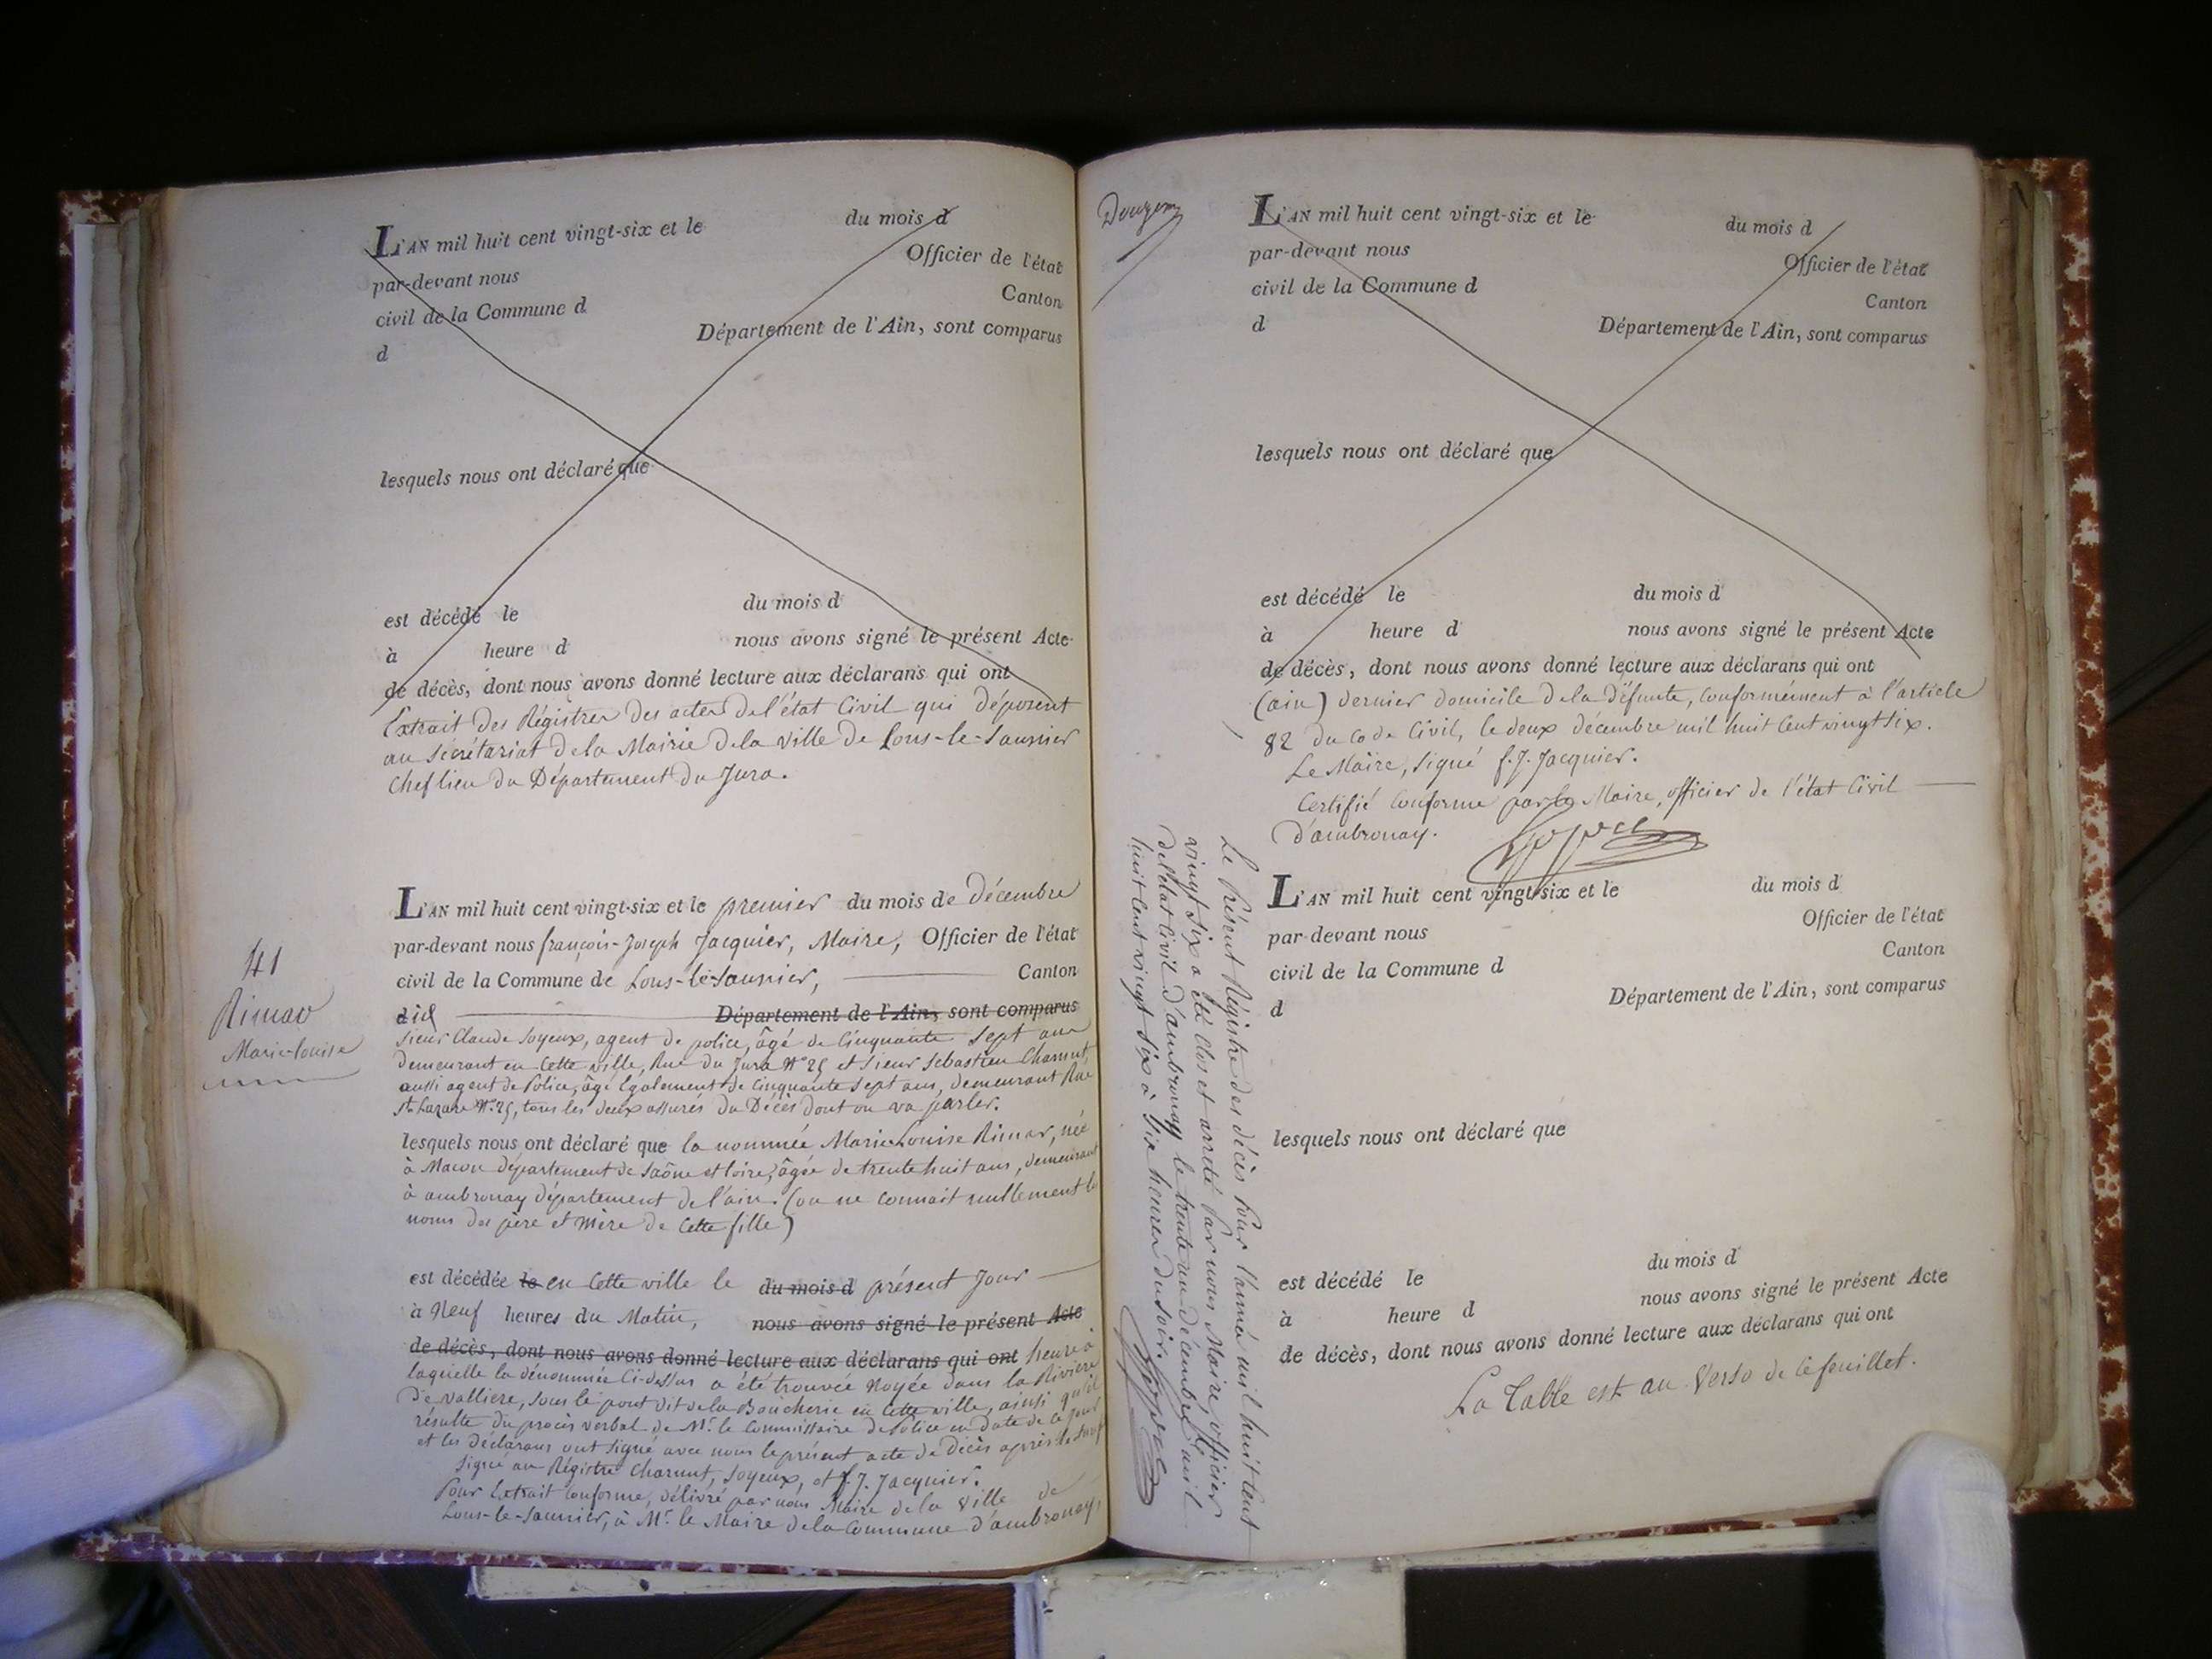 L'AN mil huit cent vingt-six et le du mois d
par-devant nous Officier de l'état
civil de la Commune d Canton
d Département de l'Ain, sont comparus
lesquels nous ont déclaré que
est décédé le du mois d
à heure d nous avons signé le présent Acte
de décès, dont nous avons donné lecture aux déclarans qui ont
Extrait des Régistres des actes de l'état Civil qui déposent
au sécrétariat de la Mairie de la ville de Lons-le-Saunier
Chef lieu du Département du Jura.
41
Rimar
Marie-Louise
L'AN mil huit cent vingt-six et le premier du mois de Décembre
par-devant nous françois-Joseph Jacquier, Maire, Officier de l'état
civil de la Commune de Lons-le-Saunier, Canton
d id Département de l'Ain, sont comparus
Sieur Claude Soyeux, agent de police, âgé de Cinquante sept ans
demeurant en Cette ville, Rue du Jura N° 25 et Sieur Sébastien Charnut,
aussi agent de Police, âgé Également de Cinquante sept ans, demeurant Rue
St. Lazare N° 25, tous les deux assurés du Décès dont on va parler.
lesquels nous ont déclaré que la nommée Marie-Louise Rimar, née
à Macon département de Saône et Loire, âgée de trente huit ans, demeurant
à ambronay département de l'ain. (on ne connait nullement le
noms des père et mère de Cette fille)
est décédée le en Cette ville le du mois d présent Jour
à Neuf heures du Matin, nous avons signé le présent Acte
de décès, dont nous avons donné lecture aux déclarans qui ont heure à
laquelle la dénommée Ci-dessus a été trouvée Noyée dans la Rivière
de Vallière, sous le pont dit de la Boucherie en Cette ville, ainsi qu'il
résulte du procès verbal de Mr. le Commissaire de Police en date de ce Jour
et les déclarans ont signé avec nous le présent acte de Décès après lecture
Signé au Régistre Charnut, Soyeux, et f. J. Jacquier.
Pour Extrait Conforme, délivré par nous Maire de la Ville de
Lons-le-Saunier, à Mr. le Maire de la Commune d'ambronay,
Douzon
L'AN mil huit cent vingt-six et le du mois d
par-devant nous Officier de l'état
civil de la Commune d Canton
d Département de l'Ain, sont comparus
lesquels nous ont déclaré que
est décédé le du mois d
à heure d nous avons signé le présent Acte
de décès, dont nous avons donné lecture aux déclarans qui ont
(ain) dernier domicile de la Défunte, Conformément à l'article
82 du Code Civil, le deux décembre mil huit Cent vingt Six.
Le Maire, Signé f. J. Jacquier.
Certifié Conforme par le Maire, officier de l'état Civil
d'ambronay.
L'AN mil huit cent vingt-six et le du mois d
par-devant nous Officier de l'état
civil de la Commune d Canton
d Département de l'Ain, sont comparus
lesquels nous ont déclaré que
est décédé le du mois d
à heure d nous avons signé le présent Acte
de décès, dont nous avons donné lecture aux déclarans qui ont
La Table est au Verso de ce feuillet.
Le Présent Régistre des décès Pour l'année mil huit Cent
vingt Six a été Clos et arrêté par nous Maire, officier
de l'état Civil d'ambronay le trente un décembre mil
huit Cent vingt Six à Six heures du soir.